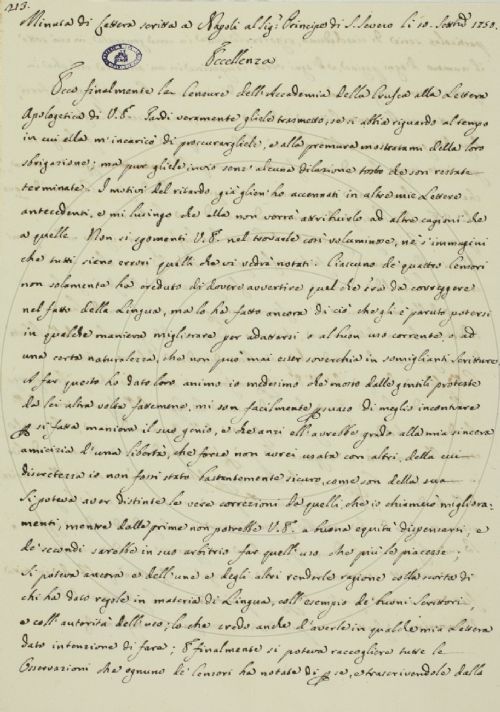 213.
Minuta di Lettera scritta a Napoli al Sig.r Principe di S. Severo li 18. Settre 1750.
Eccellenza
Ecco finalmente le Censure dell'Accademia della Crusca alla Lettera
Apologetica di V.E. Tardi veramente gliele trasmetto, se si abbia riguardo al tempo
in cui ella m'incaricò di proccurargliele, e alla premura mostratami della loro
sbrigazione; ma pur gliele invio senz'alcuna dilazione tosto che son restate
terminate. I motivi del ritardo già glien'ho accennati in altre mie Lettere
antecedenti, e mi lusingo che ella non vorrà attribuirlo ad altre cagioni che
a quelle. Non si sgomenti V.E. nel trovarle così voluminose, nè s'immagini
che tutti sieno errori quelli che vi vedrà notati. Ciascuno de' quattro Censori
non solamente ha creduto di dovere avvertire quel che v'era da correggere
nel fatto della Lingua, ma lo ha fatto ancora di ciò che gli è paruto potersi
in qualche maniera migliorare per adattarsi o al buon uso corrente, o ad
una certa naturalezza, che non può mai esser soverchia in somiglianti Scritture.
A far questo ho dato loro animo io medesimo che mosso dalle gentili proteste
da lei altra volta fattemene, mi son facilmente psuaso di meglio incontrare
p sì fatta maniera il suo genio, e che anzi ell'avrebbe grado alla mia sincera
amicizia d'una libertà, che forse non avrei usata con altri, della cui
discretezza io non fossi stato bastantemente sicuro, come son della sua.
Si poteva aver distinte le vere correzioni da quelli, che io chiamo migliora-
menti, mentre dalle prime non potrebbe V.E. a buona equità dispensarsi, e
de' secondi sarebbe in suo arbitrio far quell'uso che più le piacesse;
si poteva ancora e dell'une e degli altri renderle ragione colla scorta di
chi ha dato regole in materia di Lingua, coll'esempio de' buoni Scrittori,
e coll'autorità dell'uso; lo che credo anche d'averle in qualche mia Lettera
dato intenzione di fare; E finalmente si poteva raccogliere tutte le
Osservazioni che ognuno de' Censori ha notate di p se, e trascrivendole dalla